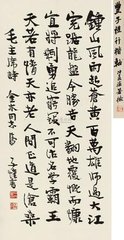 豐子愷行楷軸
鍾山風雨起蒼黃百萬雄師過大江
虎踞龍盤今勝昔天翻地覆慨而慷
宜將剩勇追窮寇不可沽名學霸王
天若有情天亦老人間正道是滄桑
毛主席詩
子愷書